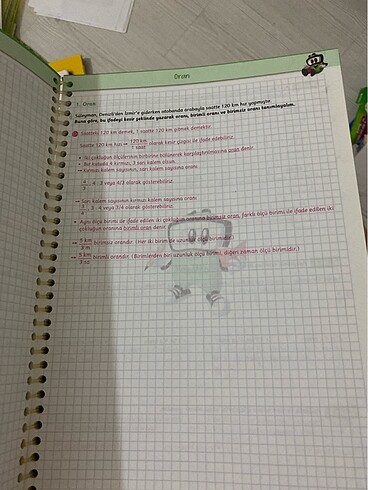 Oran
1. Oran
Süleyman, Denizli'den İzmir'e giderken otobanda arabayla saatte 120 km hız yapmıştır.
Buna göre, bu ifadeyi kesir şeklinde yazarak oranı, birimli oranı ve birimsiz oranı tanımlayalım.
Saatteki 120 km demek, 1 saatte 120 km gitmek demektir.
Saatte 120 km hızı → 120 km / 1 saat olarak kesir çizgisi ile ifade edebiliriz.
• İki çokluğun ölçülerinin birbirine bölünerek karşılaştırılmasına oran denir.
• Bir kutuda 4 kırmızı, 3 sarı kalem olsun.
→ Kırmızı kalem sayısının, sarı kalem sayısına oranı:
4/3, 4 : 3 veya 4/3 olarak gösterebiliriz.
→ Sarı kalem sayısının kırmızı kalem sayısına oranı:
3/4, 3 : 4 veya 3/4 olarak gösterebiliriz.
• Aynı ölçü birimi ile ifade edilen iki çokluğun oranına birimsiz oran, farklı ölçü birimi ile ifade edilen iki
çokluğun oranına birimli oran denir.
→ 5 km / 3 m birimsiz orandır. (Her iki birim de uzunluk ölçü birimidir.)
→ 5 km / 3 sa birimli orandır. (Birimlerden biri uzunluk ölçü birimi, diğeri zaman ölçü birimidir.)